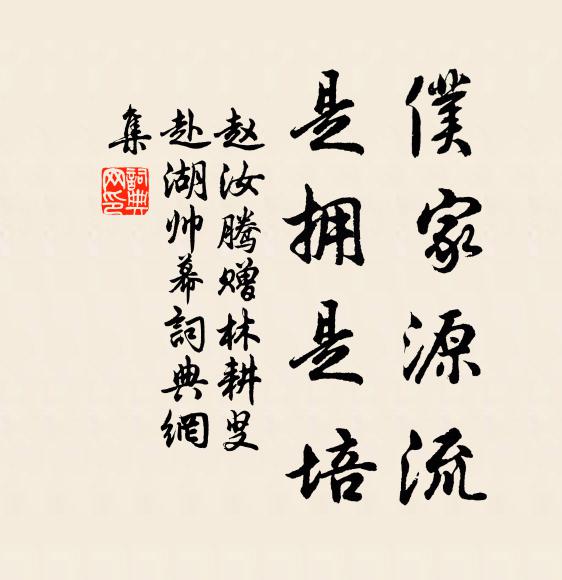 僕家源流
是拥是培
赵汝腾赠林耕叟
赴湖帅幕詞典網
集
詞典
网印